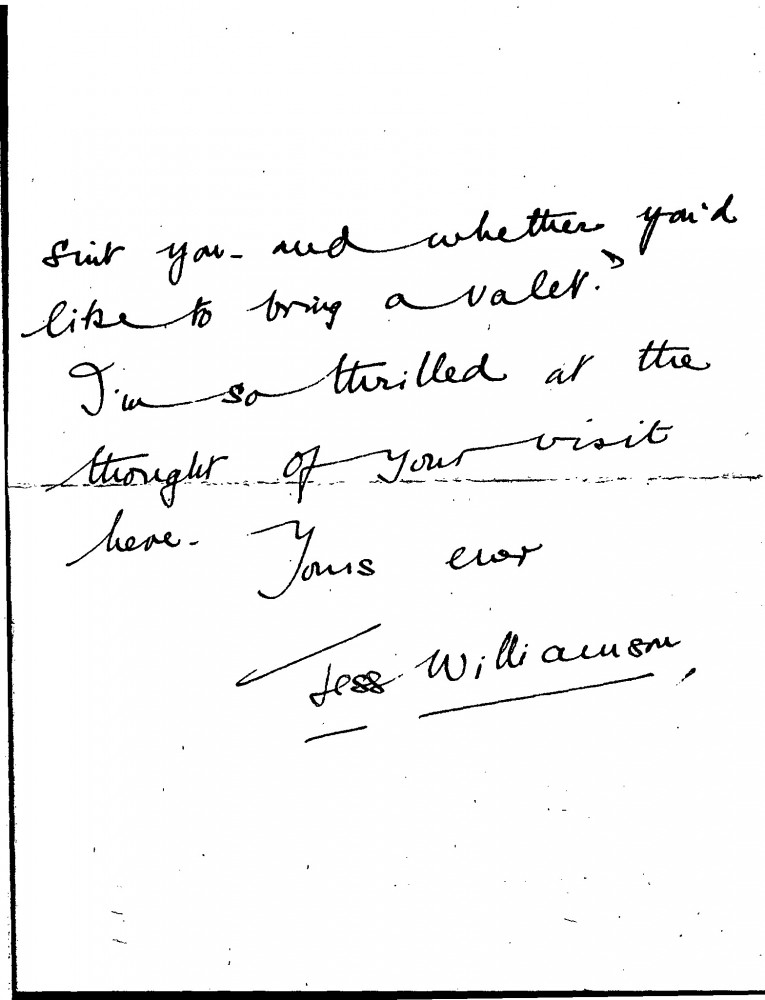 suit you - and whether you'd
like to bring a valet.?
I'm so thrilled at the
thought of your visit
here - Yours ever
Jess Williamson,